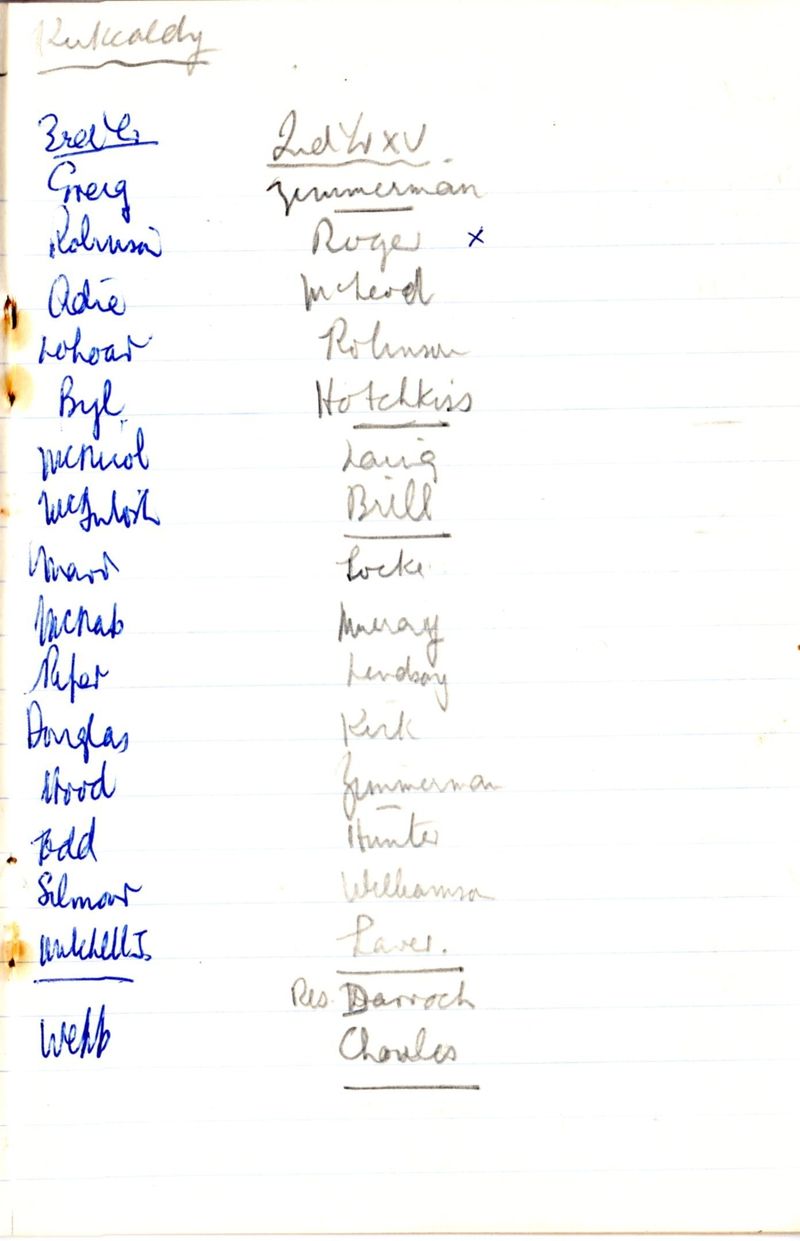 Kirkcaldy
3rd Yr
Greig
Robinson
Adie
Byl
McNicol
McIntosh
Marr
McNab
Douglas
Wood
Todd
Mitchell J.
Webb
2nd Yr XV
Zimmerman
Roger x
McLeod
Robinson
Hotchkiss
Laing
Brill
Locke
Murray
Lindsay
Kirk
Zimmerman
Hunter
Williamson
Laver.
Res. Darroch
Charles